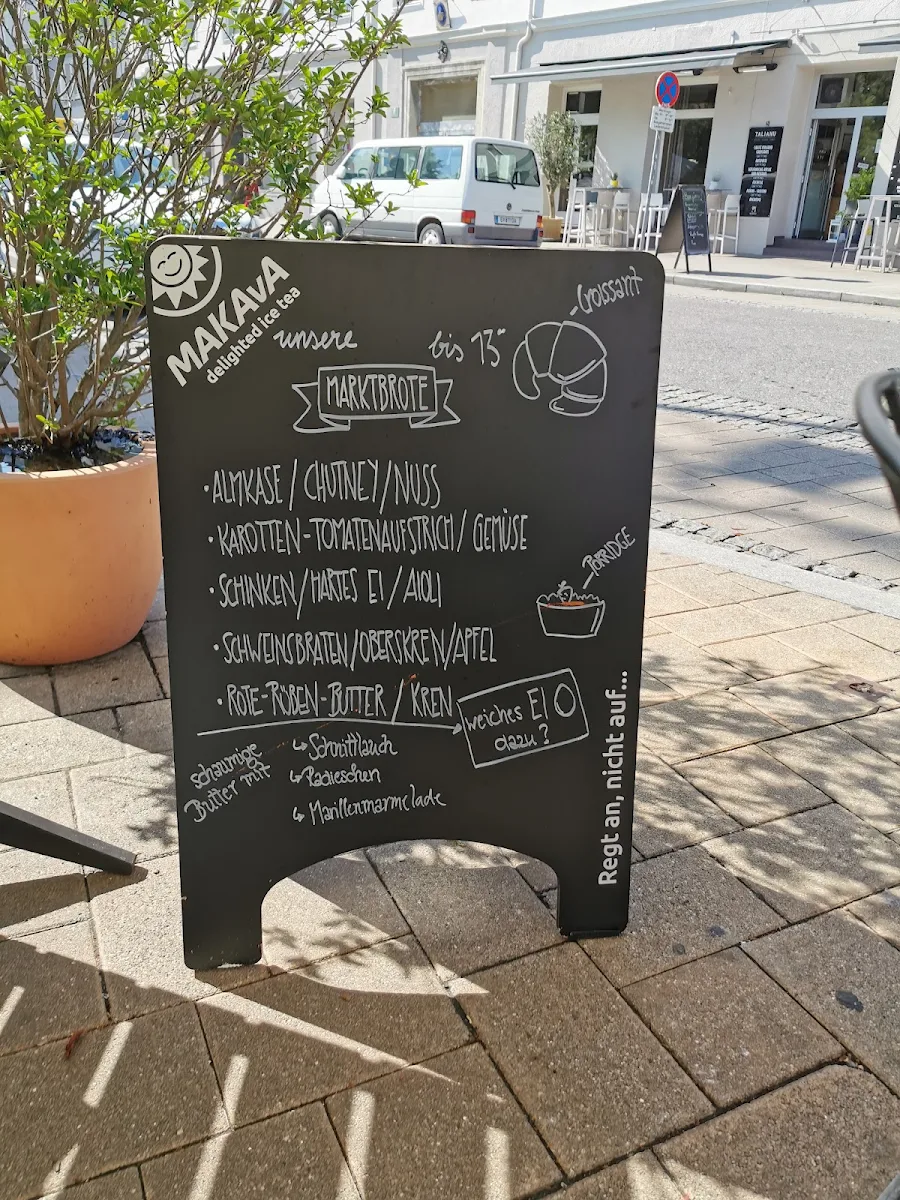 TALIANU
MAKAvA
delighted ice tea
unsere
bis 13°°
Croissant
MARKTBROTE
• ALMKÄSE / CHUTNEY / NUSS
• KAROTTEN-TOMATENAUFSTRICH / GEMÜSE
PORRIDGE
• SCHINKEN / HARTES EI / AIOLI
• SCHWEINSBRATEN / OBERSKREN / APFEL
• ROTE-RÜBEN-BUTTER / KREN
weiches EI
dazu?
schaumige
Butter mit
↳ Schnittlauch
↳ Radieschen
↳ Marillenmarmelade
Regt an, nicht auf...